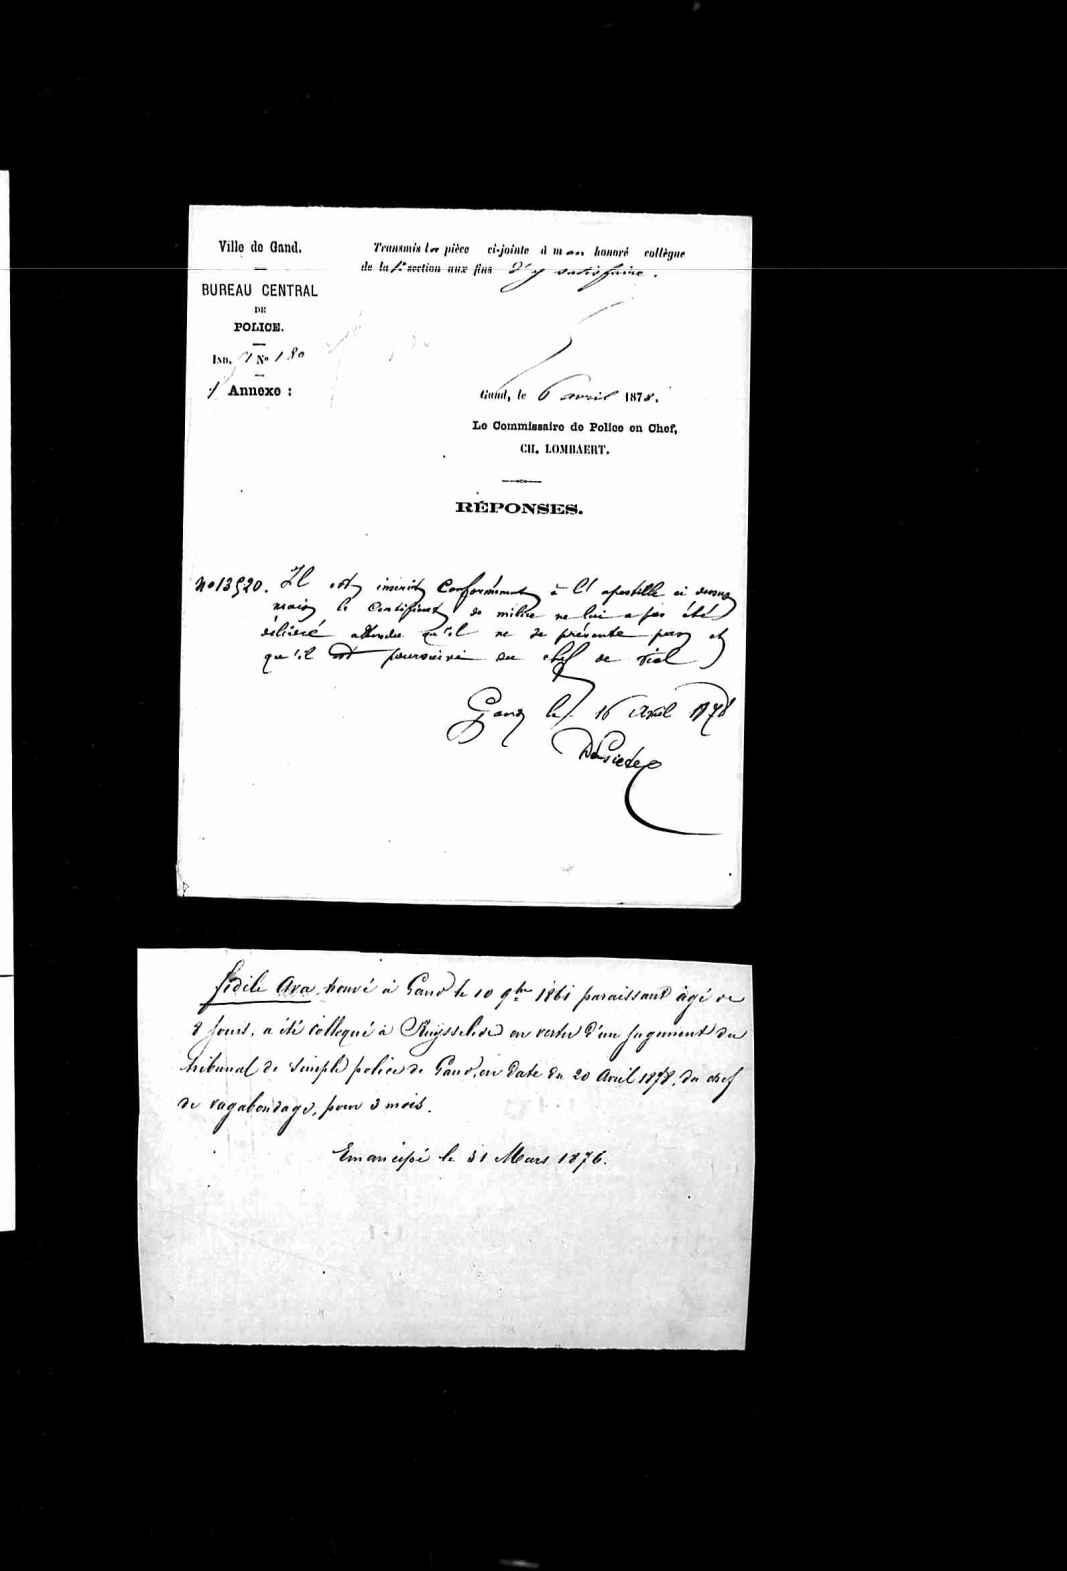 Ville de Gand.
BUREAU CENTRAL
DE
POLICE.
IND. N° 180
1 Annexe :
Transmis la pièce ci-jointe à mon honoré collègue
de la 1e section aux fins d'y satisfaire.
Gand, le 6 avril 1878.
Le Commissaire de Police en Chef,
CH. LOMBAERT.
RÉPONSES.
N° 13520. Il est inscrit conformément à l'apostille ci dessus
mais le certificat de milice ne lui a pas été
délivré attendu qu'il ne se présente pas et
qu'il est poursuivi du chef de viol
Gand le 16 avril 1878
fidèle Ava, trouvé à Gand le 10 9bre 1861 paraissant âgé de
8 jours, a été colloqué à Ruysselede en vertu d'un jugement du
tribunal de simple police de Gand, en date du 20 Avril 1878, du chef
de vagabondage, pour 3 mois.
Emancipé le 31 Mars 1876.